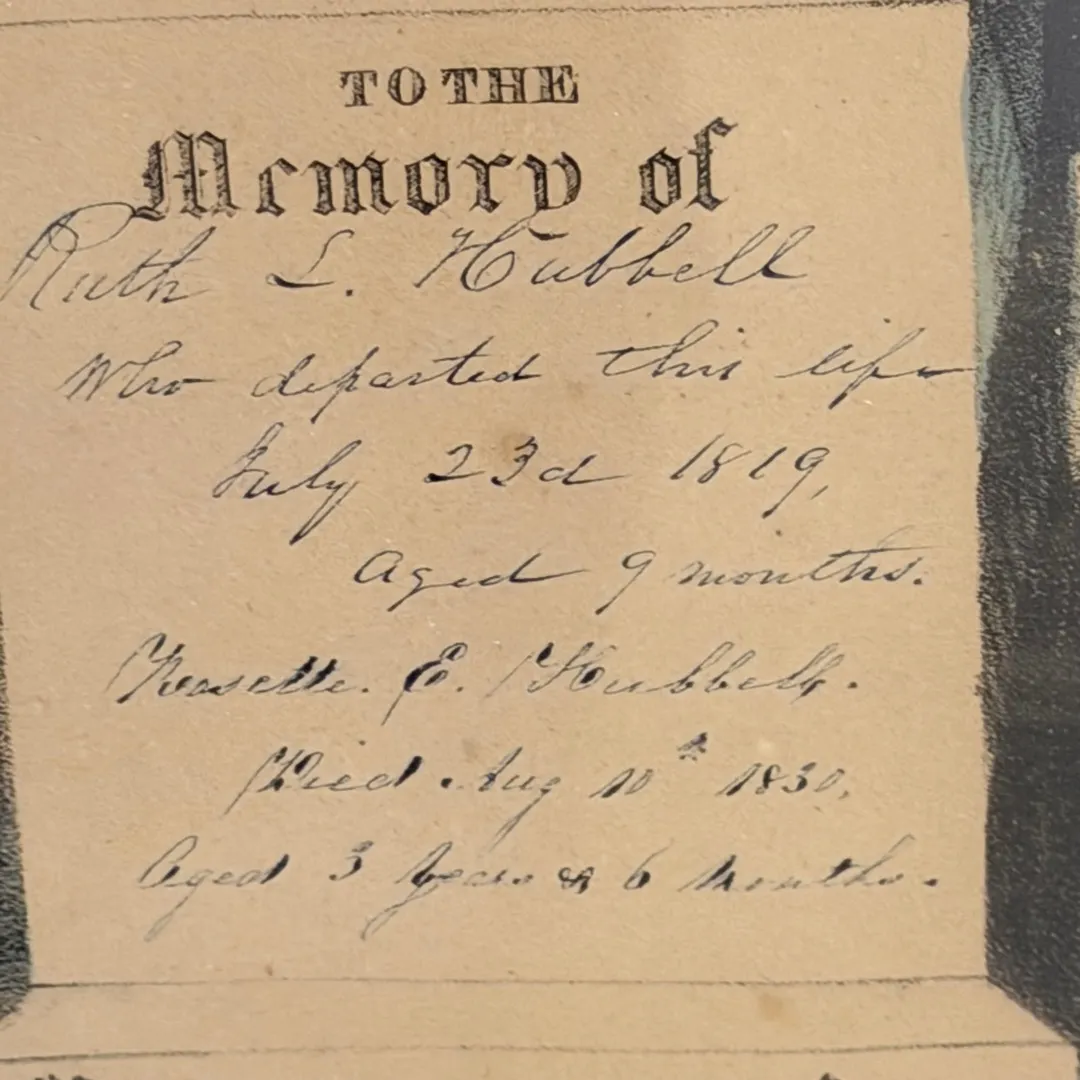 TO THE
Memory of
Ruth L. Hubbell
Who departed this life
July 23d 1819,
Aged 9 months.
Rosette. E. Hubbell.
Died. Aug 10th 1830,
Aged 3 Years & 6 Months.